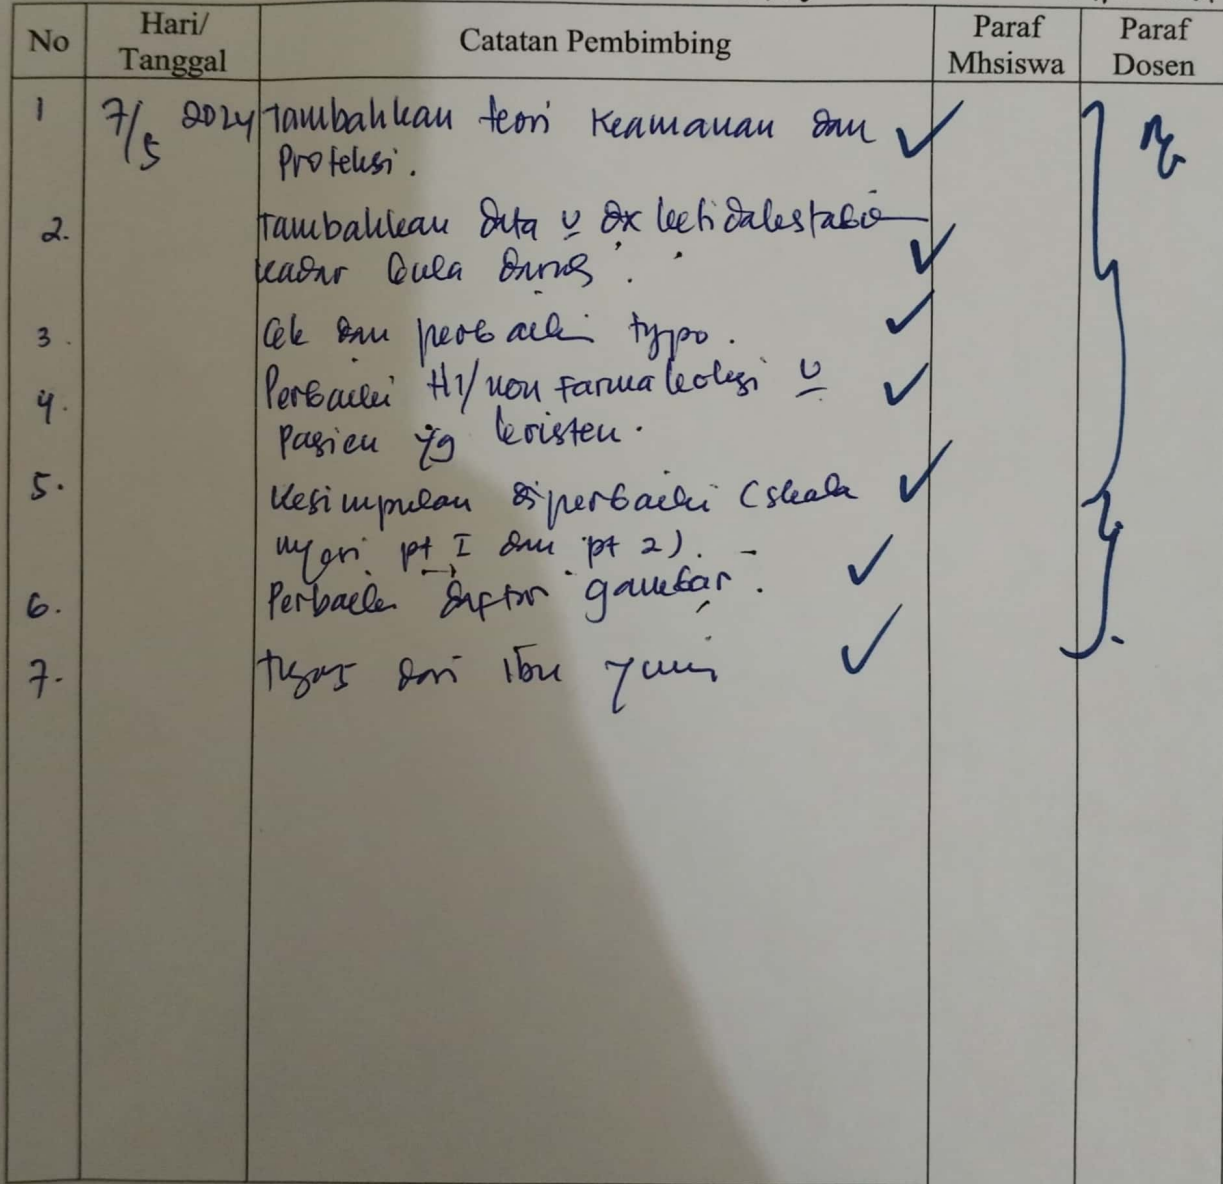 No
Hari/
Tanggal
Catatan Pembimbing
Paraf
Mhsiswa
Paraf
Dosen
1 7/5 2024 Tambahkan teori Keamanan dan
Proteksi.
2. Tambahkan data u dx ketidakstabilan
kadar Gula darah.
3. Cek dan perbaiki typo.
4. Perbaiki HI/non Farmakologi u
Pasien yg kristen.
5. Kesimpulan diperbaiki (skala
nyeri pt I dan pt 2).
6. Perbaiki daftar gambar.
7. tugas dari Ibu Yuni